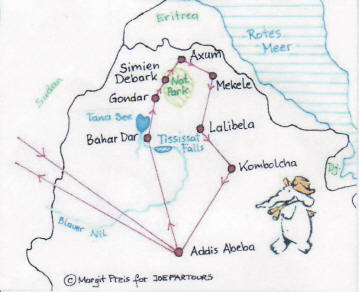 Eritrea
Rotes
Meer
Axum
Simien
Debark
Nat.
Park
Mekele
Gondar
Sudan
Tana See
Lalibela
Bahar Dar
Tississat
Falls
Kombolcha
Dj
Blauer Nil
Addis Abeba
© Margit Preis for JOEPARTOURS